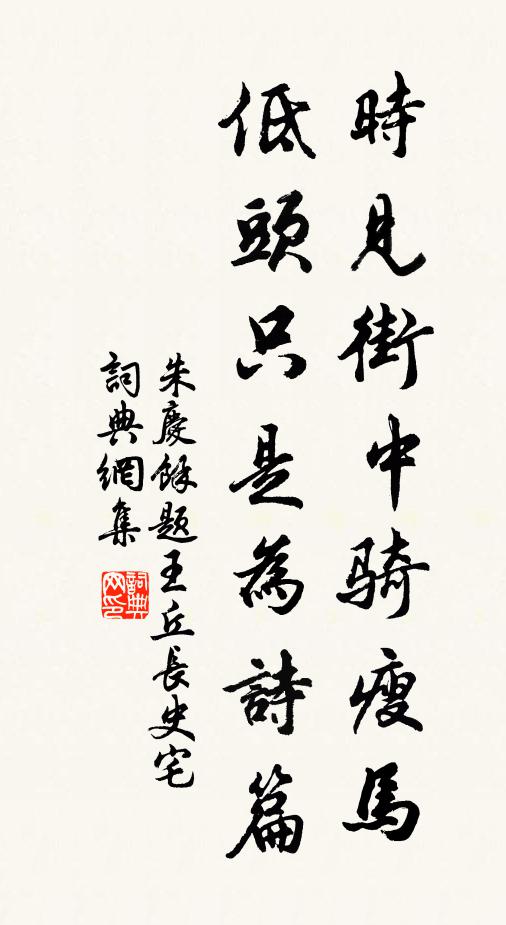 時見街中騎瘦馬
低頭只是為詩篇
朱慶餘題王丘長史宅
詞典網集
詞典网印